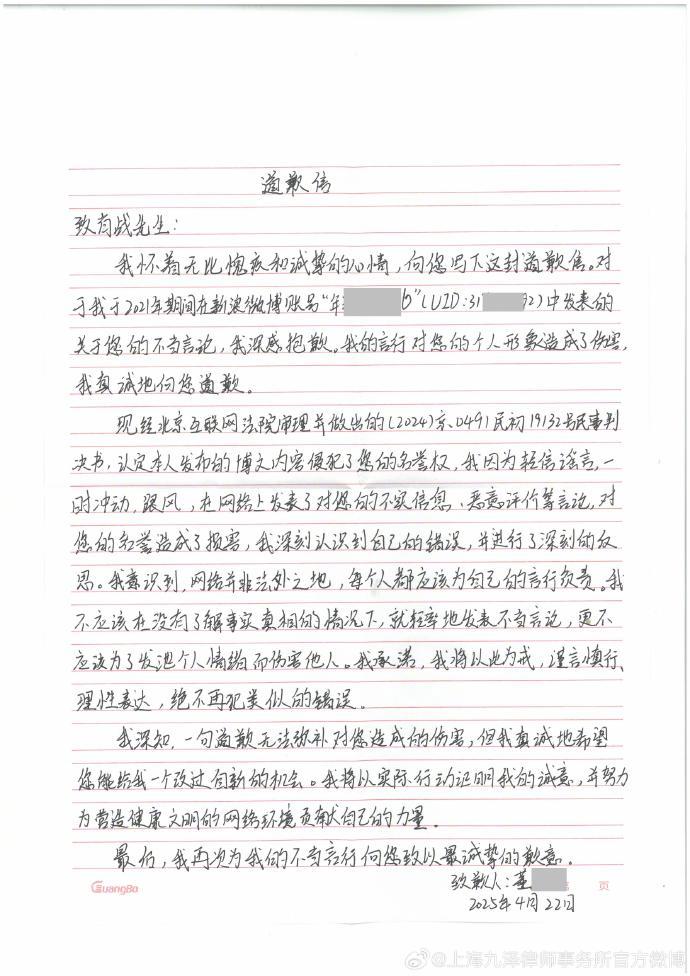 道歉信
致肖战先生：
我怀着无比愧疚和诚挚的心情，向您写下这封道歉信。对
于我于2021年期间在新浪微博账号“年 b”（UID：31 92）中发表的
关于您的不当言论，我深感抱歉。我的言行对您的个人形象造成了伤害，
我真诚地向您道歉。
现经北京互联网法院审理并做出的（2024）京0491民初19132号民事判
决书，认定本人发布的博文内容侵犯了您的名誉权，我因为轻信谣言，一
时冲动，跟风，在网络上发表了对您的不实信息、恶意评价等言论，对
您的名誉造成了损害，我深刻认识到自己的错误，并进行了深刻的反
思。我意识到，网络并非法外之地，每个人都应该为自己的言行负责。我
不应该在没有了解事实真相的情况下，就轻率地发表不当言论，更不
应该为了发泄个人情绪而伤害他人。我承诺，我将以此为戒，谨言慎行，
理性表达，绝不再犯类似的错误。
我深知，一句道歉无法弥补对您造成的伤害，但我真诚地希望
您能给我一个改过自新的机会。我将以实际行动证明我的诚意，并努力
为营造健康文明的网络环境贡献自己的力量。
最后，我再次为我的不当言行向您致以最诚挚的歉意。
致歉人：董
GuangBo 页
2025年4月22日
@上海九泽律师事务所官方微博